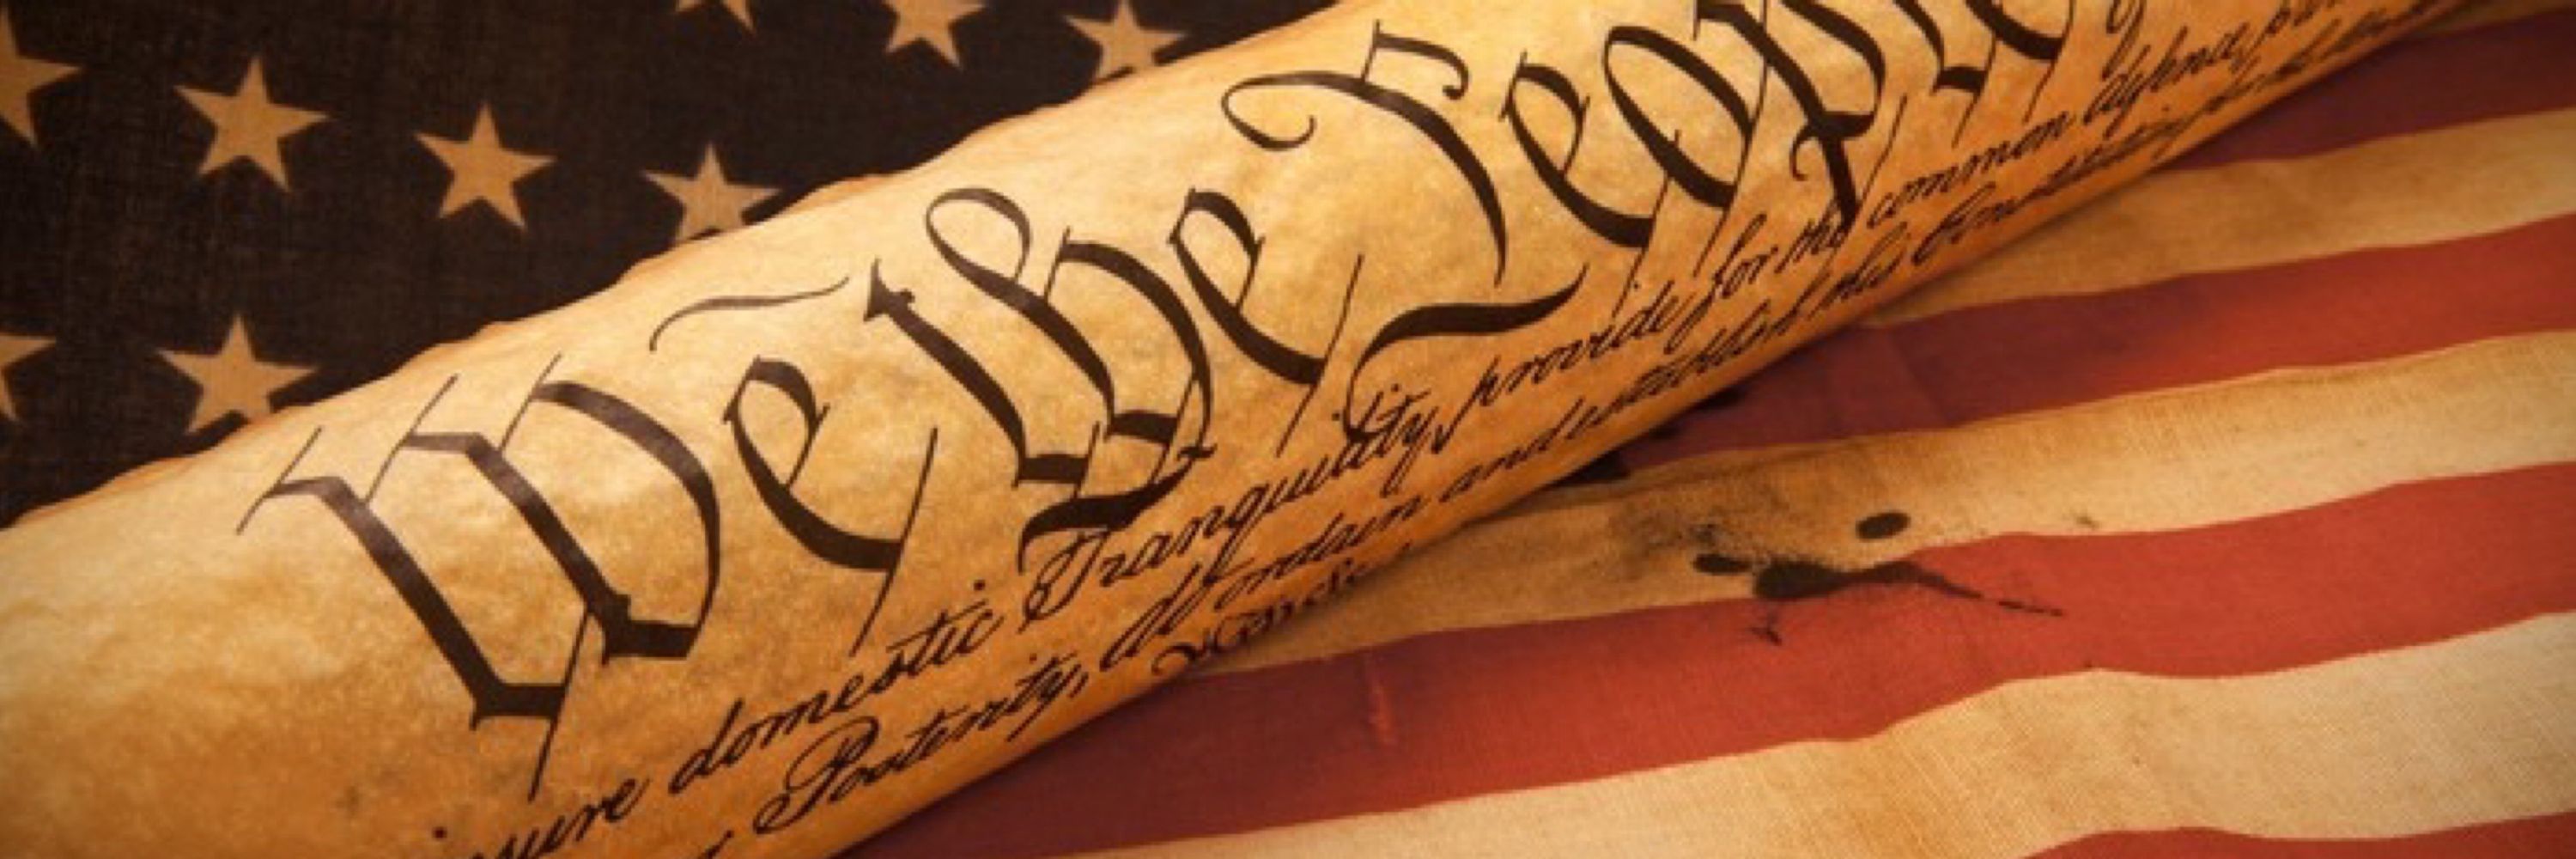 We the People
sure domestic Tranquility, provide for the common defence,
Posterity, do ordain and establish this Constitution